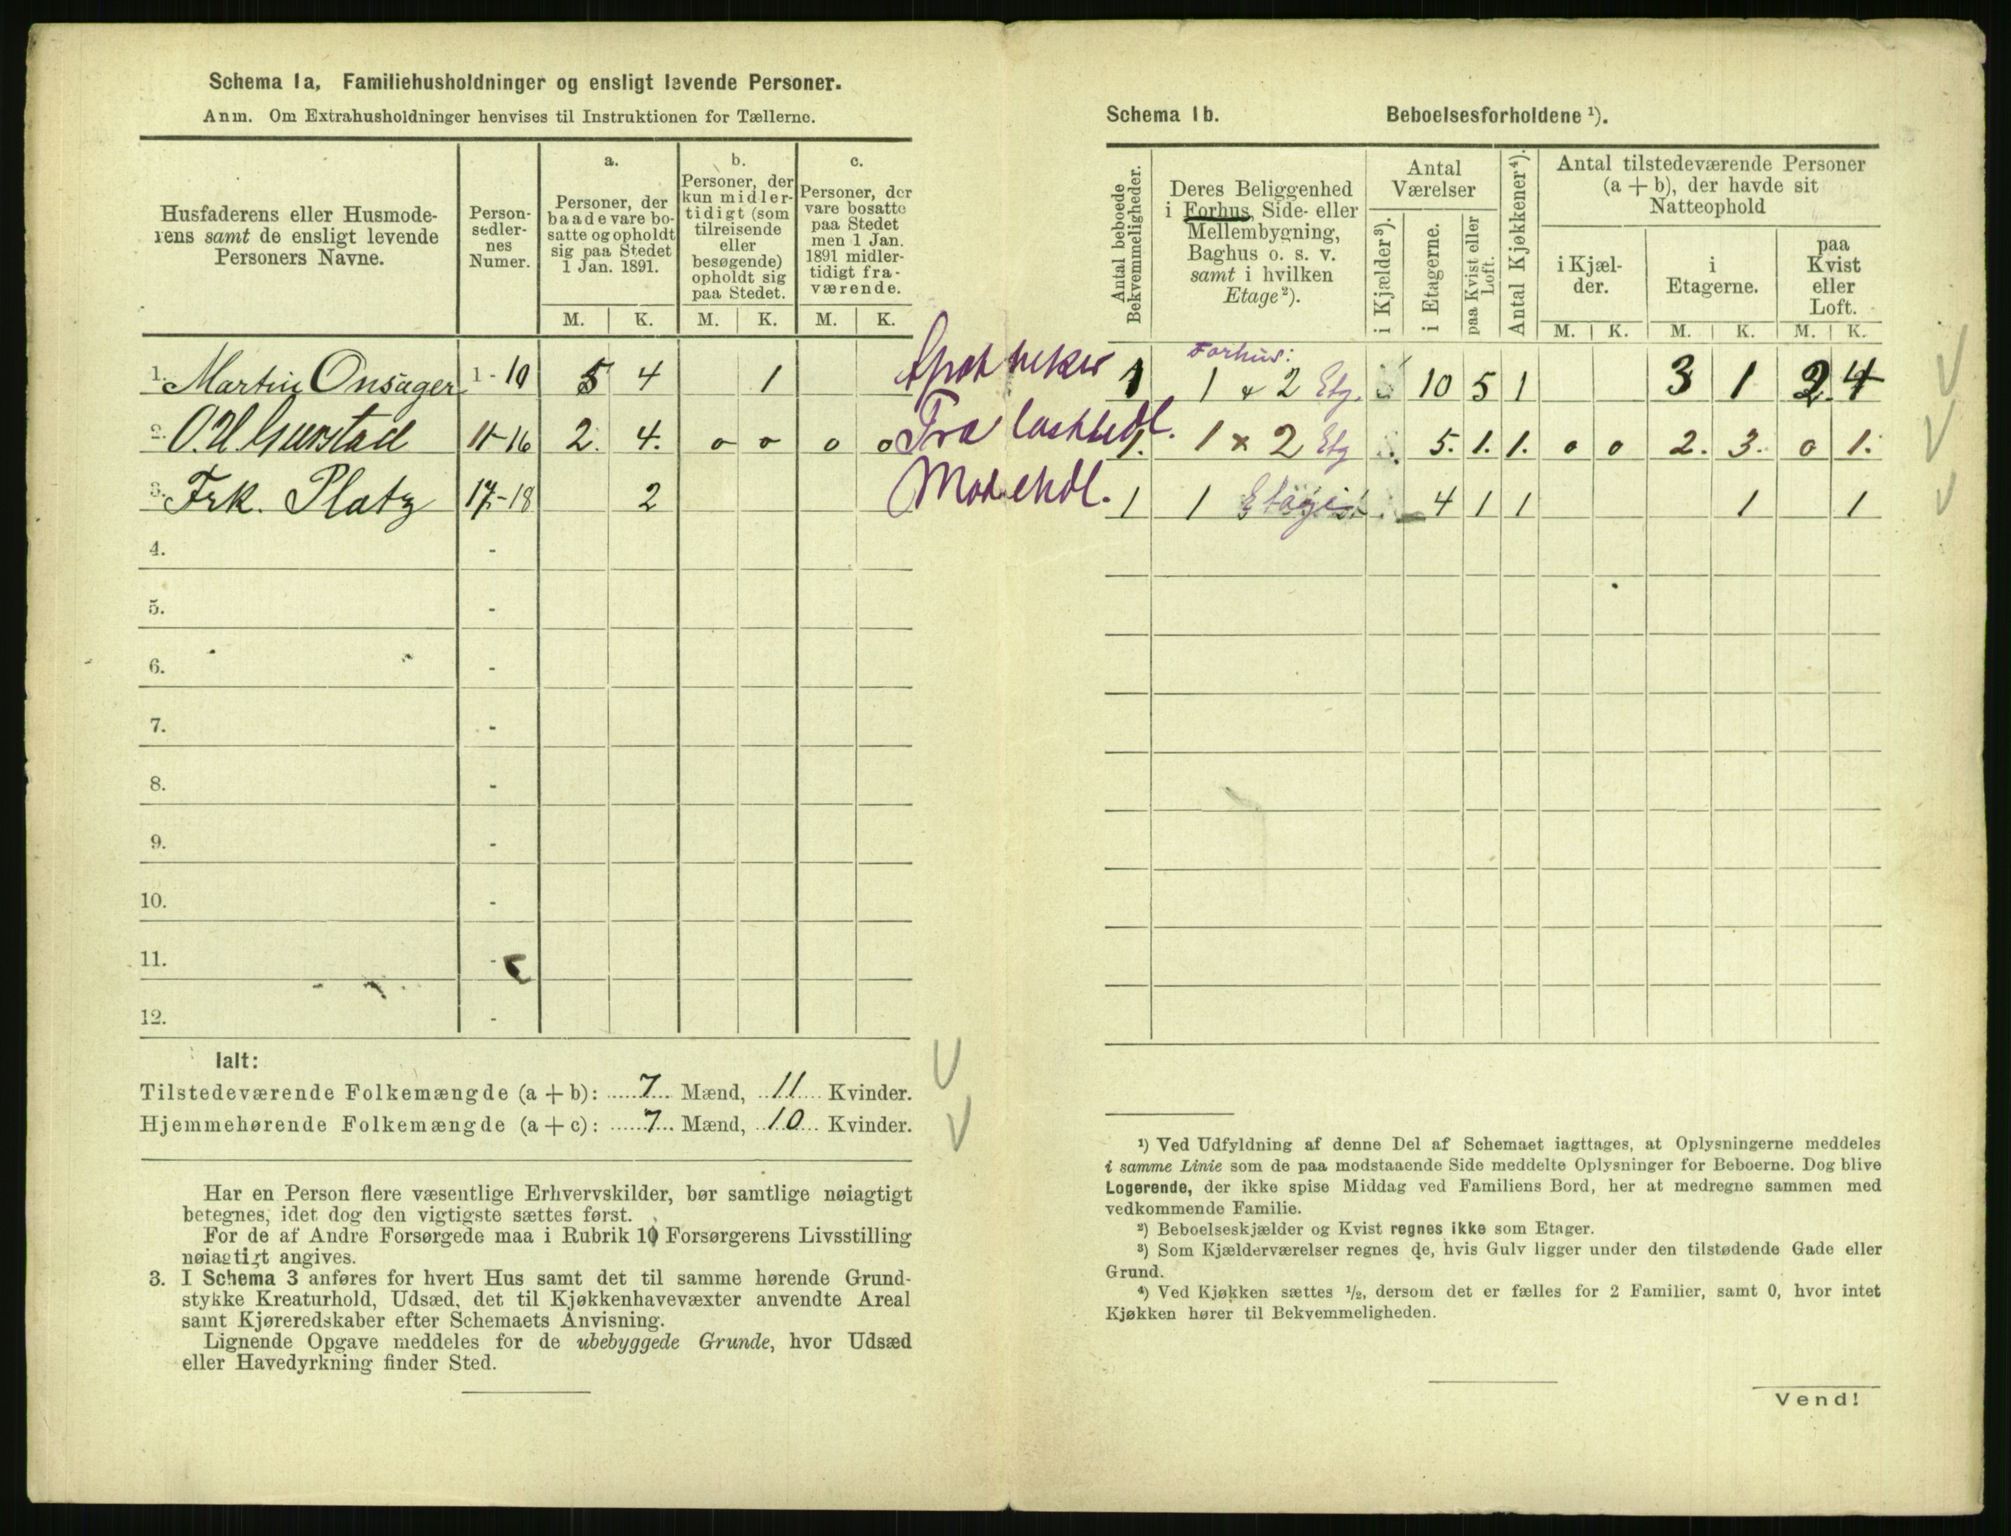 Schema 1a, Familiehusholdninger og ensligt levende Personer.
Anm. Om Extrahusholdninger henvises til Instruktionen for Tællerne.
Husfaderens eller Husmode-
rens samt de ensligt levende
Personers Navne.
Person-
sedler-
nes
Numer.
a.
Personer, der
baade vare bo-
satte og opholdt
sig paa Stedet
1 Jan. 1891.
b.
Personer, der
kun midler-
tidigt (som
tilreisende
eller
besøgende)
opholdt sig
paa Stedet.
c.
Personer, der
vare bosatte
paa Stedet
men 1 Jan.
1891 midler-
tidigt fra-
værende.
M. K. M. K. M. K.
1. Martin Onsager 1 - 10 5 4 1 Apotheker
2. O. H. Gurstad 11-16 2. 4. o o o o Tra lasthdl.
3. Frk. Platz 17-18 2 Modehdl.
4. -
5. -
6. -
7. -
8. -
9. -
10. -
11. -
12. -
Ialt:
Tilstedeværende Folkemængde (a + b): 7 Mænd, 11 Kvinder.
Hjemmehørende Folkemængde (a + c): 7 Mænd, 10 Kvinder.
Har en Person flere væsentlige Erhvervskilder, bør samtlige nøiagtigt
betegnes, idet dog den vigtigste sættes først.
For de af Andre Forsørgede maa i Rubrik 10 Forsørgerens Livsstilling
nøiagtigt angives.
3. I Schema 3 anføres for hvert Hus samt det til samme hørende Grund-
stykke Kreaturhold, Udsæd, det til Kjøkkenhavevæxter anvendte Areal
samt Kjøreredskaber efter Schemaets Anvisning.
Lignende Opgave meddeles for de ubebyggede Grunde, hvor Udsæd
eller Havedyrkning finder Sted.
Schema 1b. Beboelsesforholdene ¹).
Antal beboede
Bekvemmeligheder.
Deres Beliggenhed
i Forhus, Side- eller
Mellembygning,
Baghus o. s. v.
samt i hvilken
Etage ²).
Antal
Værelser
i Kjælder ³).
i Etagerne.
paa Kvist eller
Loft.
Antal Kjøkkener ⁴).
Antal tilstedeværende Personer
(a + b), der havde sit
Natteophold
i Kjæl-
der.
i
Etagerne.
paa
Kvist
eller
Loft.
M. K. M. K. M. K.
Forhus:
1 1 & 2 Etg. 10 5 1 3 1 2 4
1. 1 x 2 Etg 5. 1. 1. o o 2. 3. o 1.
1 1 Etage 4 1 1 1 1
¹) Ved Udfyldning af denne Del af Schemaet iagttages, at Oplysningerne meddeles
i samme Linie som de paa modstaaende Side meddelte Oplysninger for Beboerne. Dog blive
Logerende, der ikke spise Middag ved Familiens Bord, her at medregne sammen med
vedkommende Familie.
²) Beboelseskjælder og Kvist regnes ikke som Etager.
³) Som Kjælderværelser regnes de, hvis Gulv ligger under den tilstødende Gade eller
Grund.
⁴) Ved Kjøkken sættes ½, dersom det er fælles for 2 Familier, samt 0, hvor intet
Kjøkken hører til Bekvemmeligheden.
Vend!